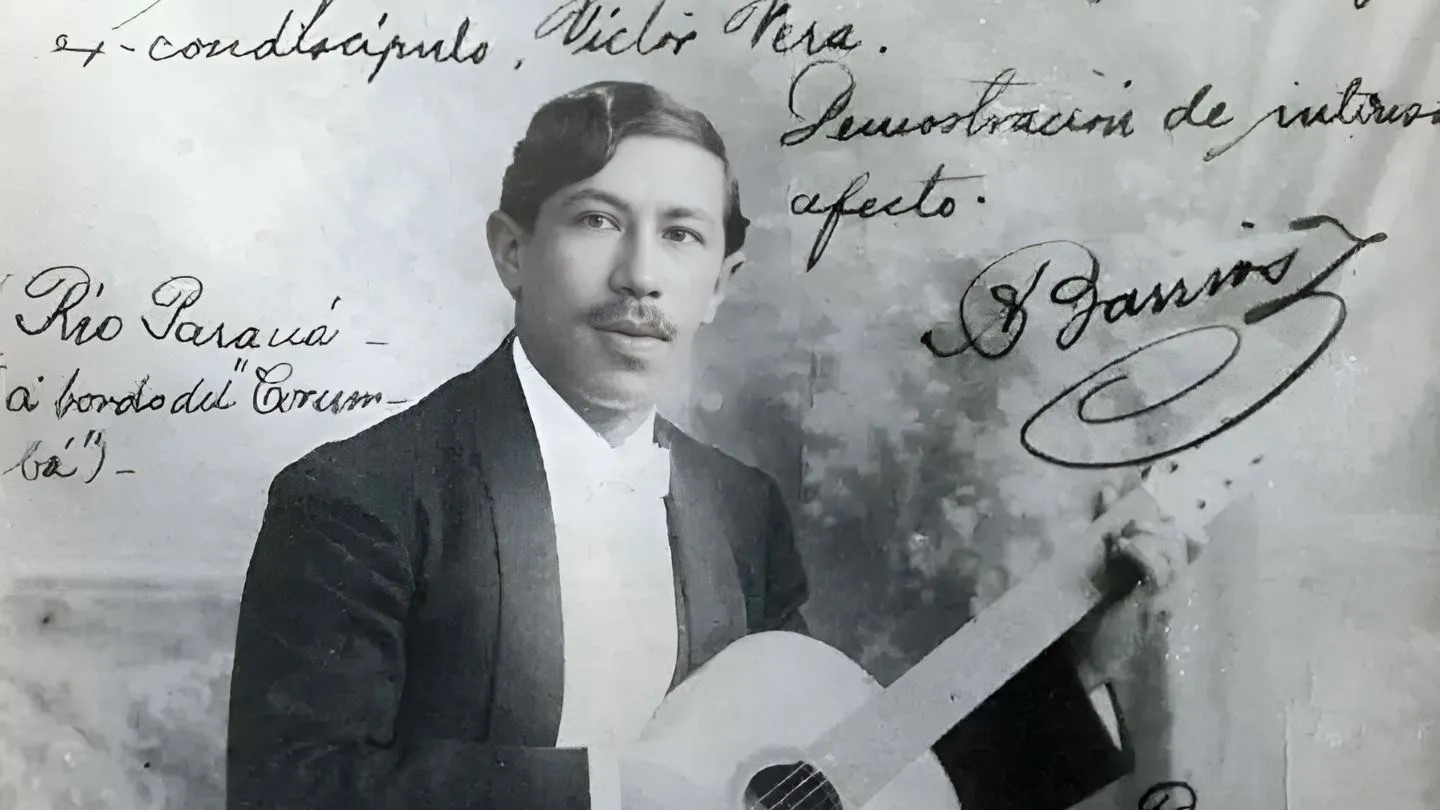 ex-condiscípulo, Victor Vera.
Demostración de intenso
afecto.
A Barrios
Río Paraná -
á bordo del "Corum-
bá") -